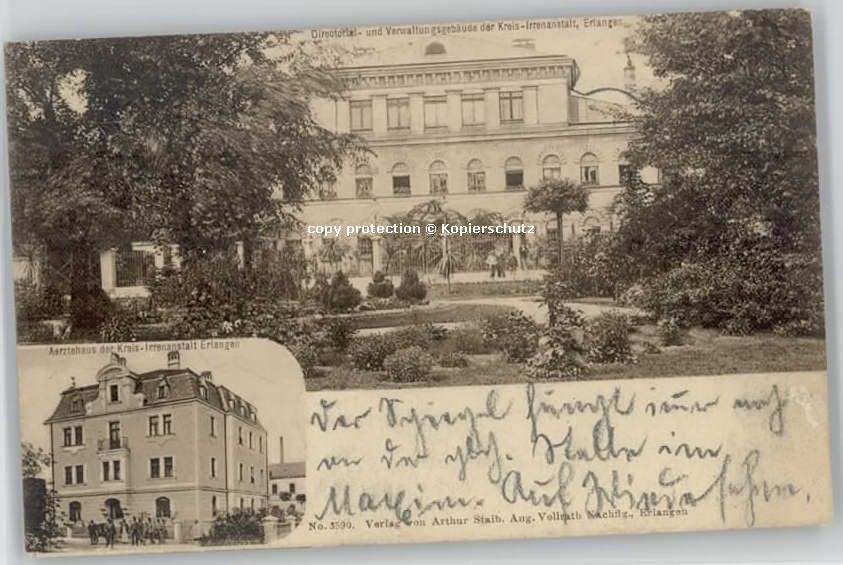 Directorial- und Verwaltungsgebäude der Kreis-Irrenanstalt, Erlangen
copy protection © Kopierschutz
Aerztehaus der Kreis-Irrenanstalt Erlangen
Der Spiegel hängt immer noch
an der gleich. Stelle im
Maxim. Auf Wiedersehn.
No. 3590. Verlag von Arthur Staib, Aug. Vollrath Nachflg., Erlangen